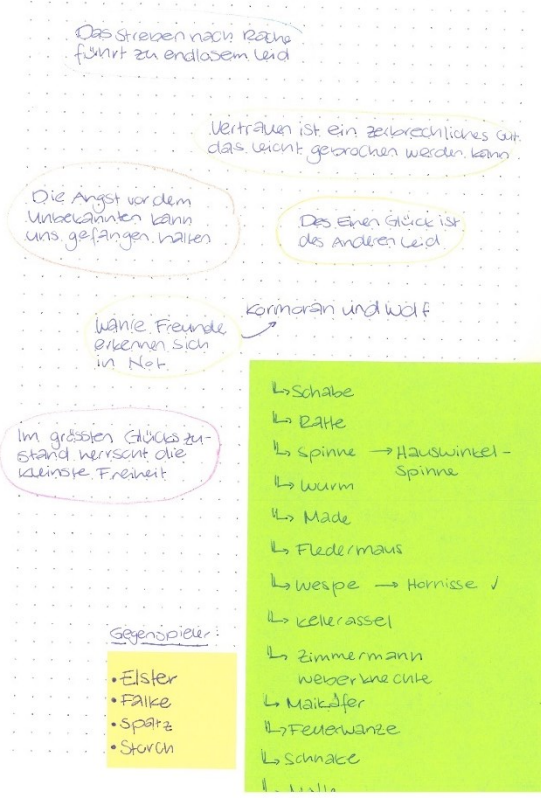 Das streben nach Rache
führt zu endlosem Leid
Vertrauen ist ein zerbrechliches Gut
das leicht gebrochen werden kann
Die Angst vor dem
Unbekannten kann
uns gefangen halten
Des Einen Glück ist
des Anderen Leid
Wahre Freunde
erkennen sich
in Not
Kormoran und Wolf
Im grössten Glückszu-
stand herrscht die
kleinste Freiheit
↳ Schabe
↳ Ratte
↳ Spinne → Hauswinkel-
spinne
↳ Wurm
↳ Made
↳ Fledermaus
↳ Wespe → Hornisse ✓
↳ Kellerassel
↳ Zimmermann
Weberknechte
↳ Maikäfer
↳ Feuerwanze
↳ Schnake
Gegenspieler:
• Elster
• Falke
• Spatz
• Storch